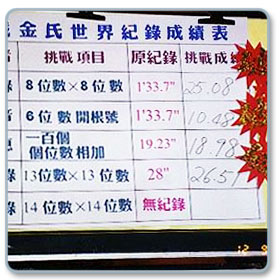 金氏世界紀錄成績表
挑戰項目 原紀錄 挑戰成績
8位數×8位數 1'33.7" 25.08
6位數開根號 1'33.7" 10.48
一百個個位數相加 19.23" 18.98
錄 13位數×13位數 28" 26.51
錄 14位數×14位數 無紀錄
12 9